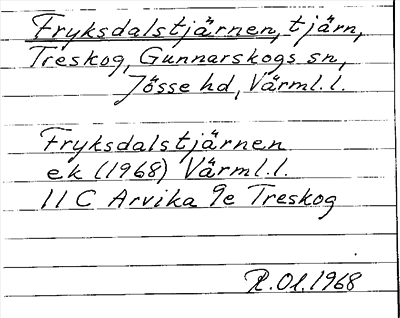 Fryksdalstjärnen, tjärn,
Treskog, Gunnarskogs sn,
Jösse hd, Värml.l.
Fryksdalstjärnen
ek (1968) Värml.l.
11 C Arvika 9e Treskog
R.Ol.1968